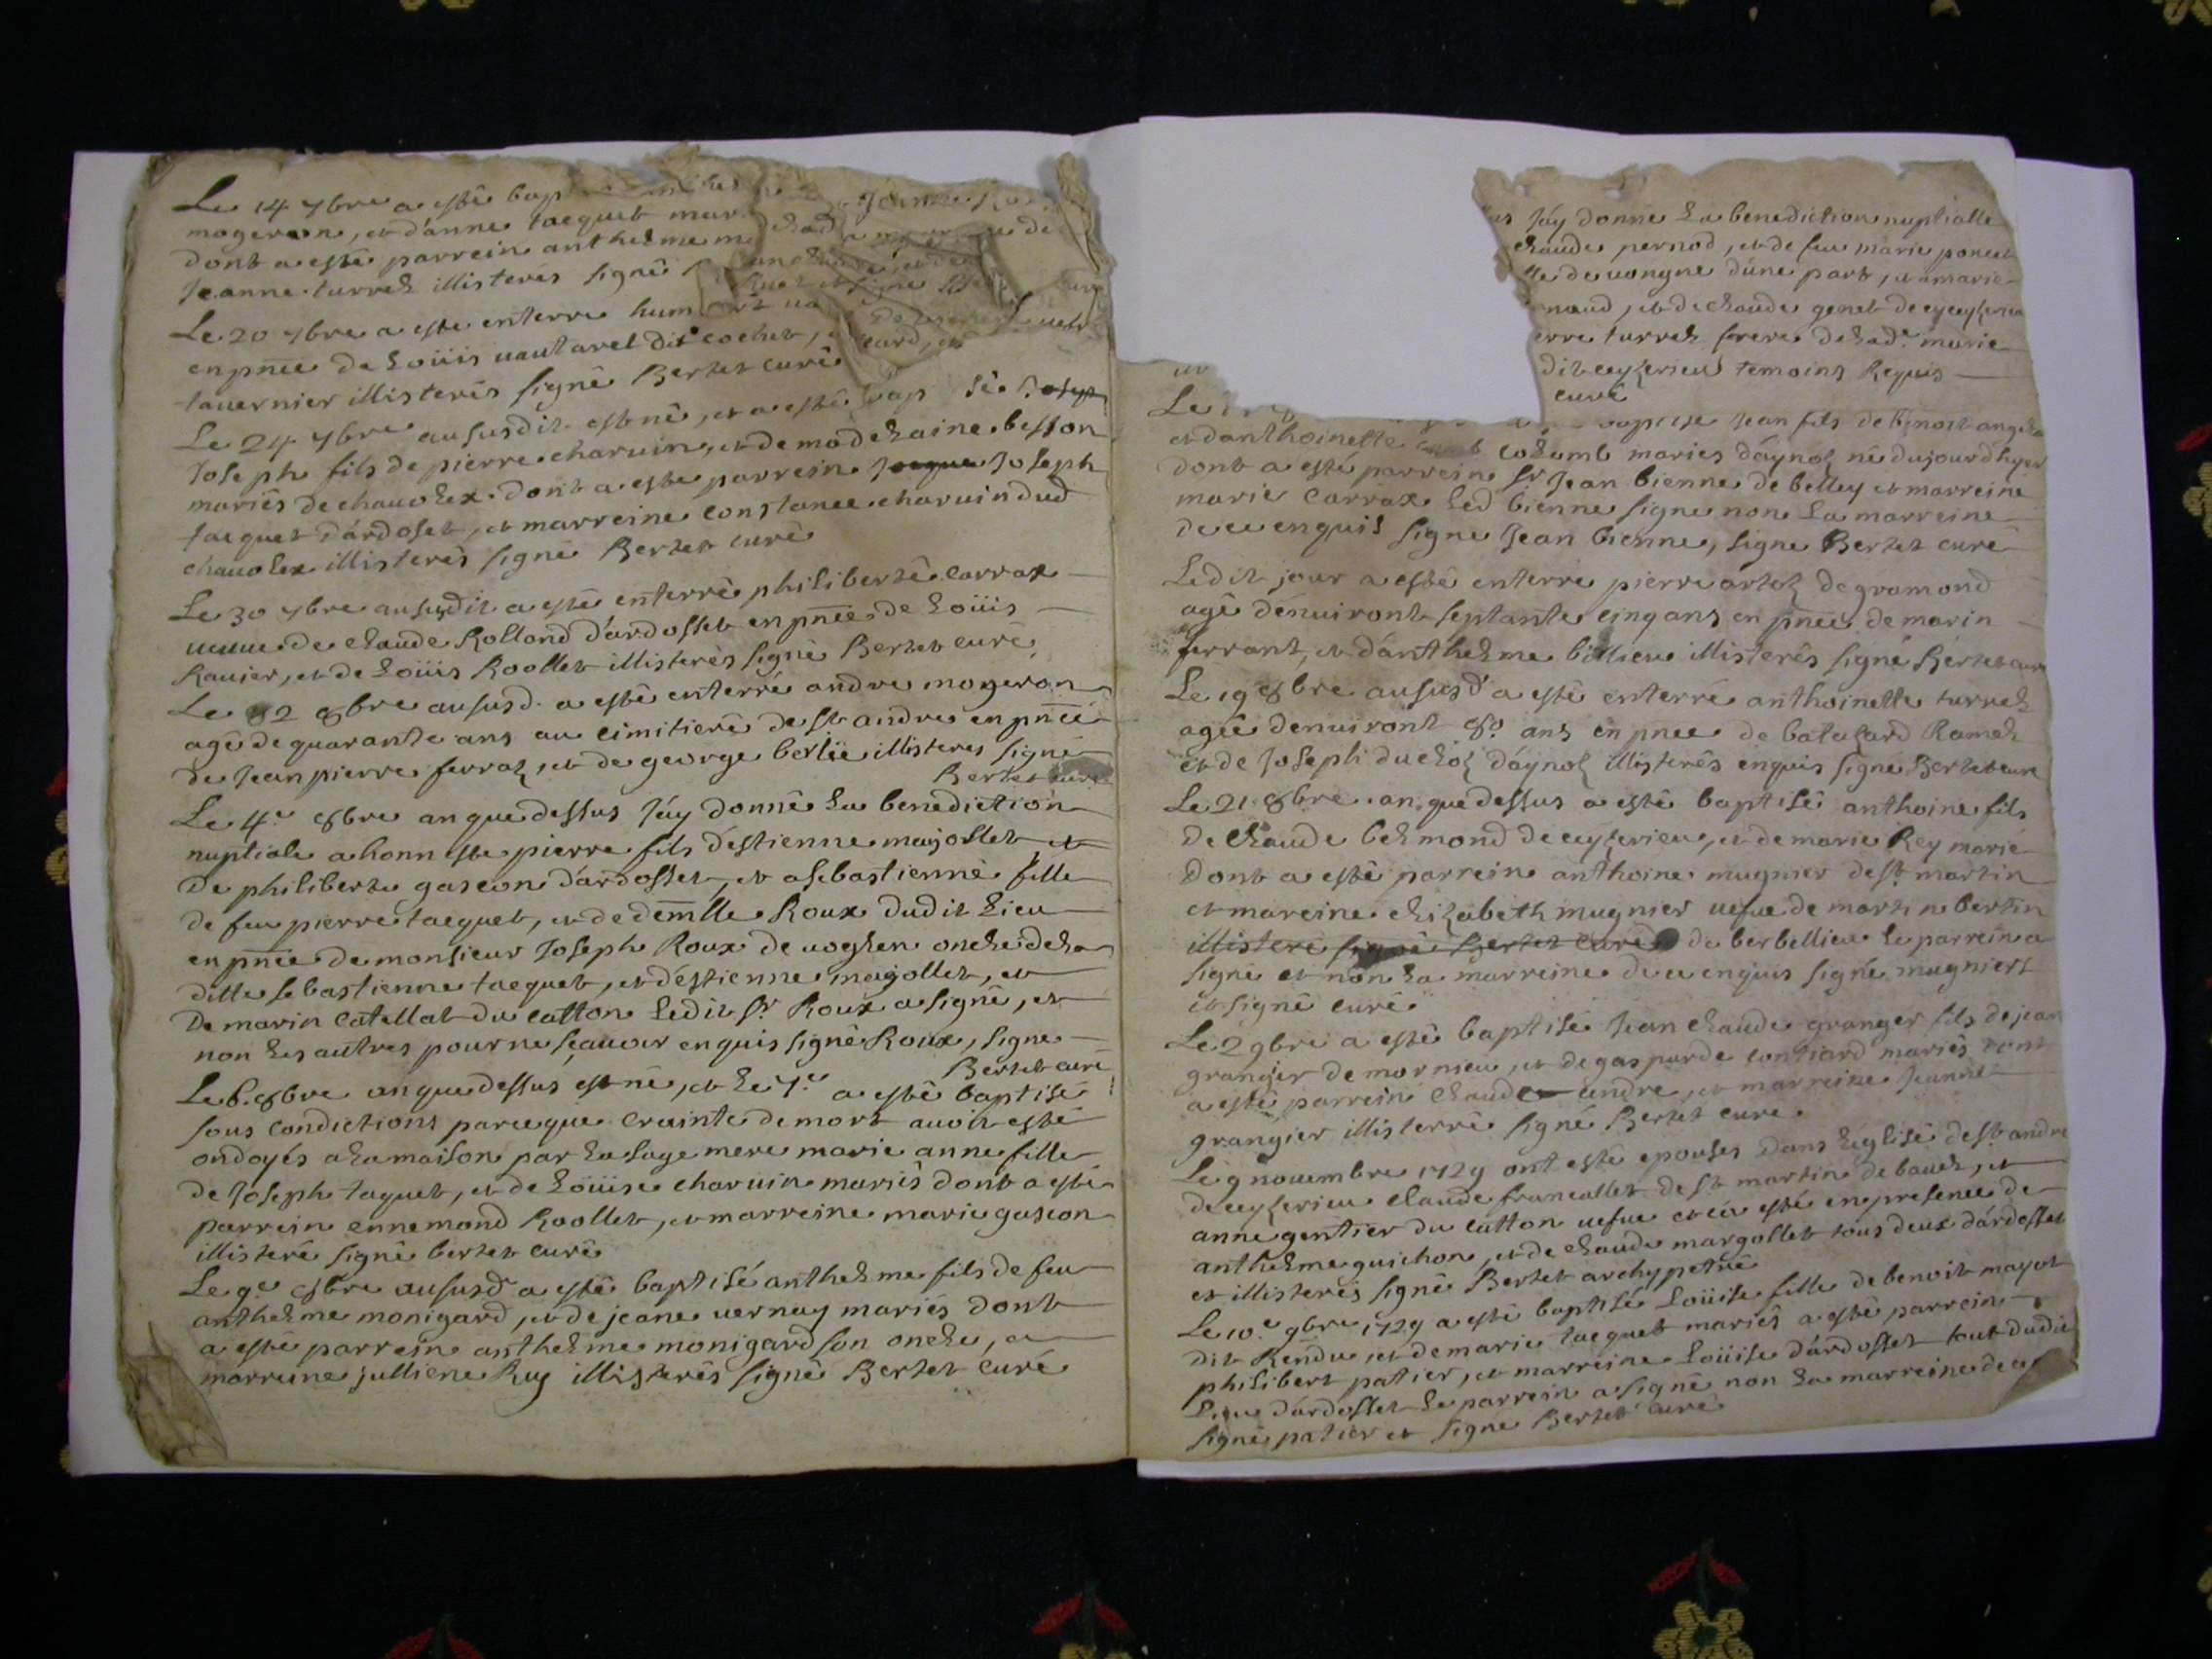 Le 14 7bre a esté bap
mogeron, et d'anne tacquet mar
dont a esté parrein anthelme m
Jeanne turrel illisteres signé
Le 20 7bre a esté enterre hum
en pnce de Loüis vautaret dit cochet,
tavernier illisterés signé Bertet curé
Le 24 7bre aususdit est né, et a esté bap sé Joseph
Joseph fils de pierre charvin, et de madelaine besson
mariés de chavolex. dont a esté parrein Jacque Joseph
tacquet d'ardoset, et marreine constance charvin dud
chavolex illisterés signé Bertet curé
Le 30 7bre aususdit a esté enterré philiberte carrax
veuve de claude Rolland d'ardosset en pnce de Loüis
Ravier, et de Loüis Roollet illisterés signé Bertet curé
Le 2 8bre aususd. a esté enterré andre mogeron
agé de quarante ans au cimitiere de st andre en pnce
de Jean pierre ferraz, et de george berlie illisteres signé
Bertet curé
Le 4e 8bre an que dessus J'ay donné la benediction
nuptiale a honneste pierre fils d'estienne majollet et
de philiberte gascon d'ardosset, et a sebastienne fille
de feu pierre tacquet, et de demlle Roux dudit Lieu
en pnce de monsieur Joseph Roux de voglen oncle de la
ditte sebastienne tacquet, et d'estienne majollet, et
de marin catellat du catton Ledit Sr Roux a signé, et
non les autres pour ne sçavoir enquis signé Roux, signe
Bertet curé
Le 6. 8bre an que dessus est né, et le 7e a esté baptisé
sous condictions parceque crainte de mort avoit esté
ondoyés a la maison par la sage mere marie anne fille
de Joseph taquet, et de Loüise charvin mariés dont a esté
parrein ennemond Roollet, et marreine marie gascon
illisteré signé bertet curé
Le 9e 8bre aususd a esté baptisé anthelme fils de feu
anthelme monigard, et de jeane vernay mariés dont
a esté parrein anthelme monigard son oncle, et
marreine julliene Ruy illisterés signé Bertet curé
J'ay donné La benediction nuptialle
claude pernod, et de feu marie poncet
de vongne d'une part, et a marie
naud, et de claude genet de ceyzerieu
erre turrel frere de lade marie
dit ceyzerieu temoins Requis
curé
Le
baptisé Jean fils de binoit
et d'anthoinette colomb maries d'aynoz né du jourd'hyer
dont a esté parrein Sr Jean bienne de belley et marreine
marie carrax Led bienne signe non la marreine
de ce enquis signe Jean bienne, signe Bertet curé
Ledit jour a esté enterre pierre artoz de gramond
agé d'environt septante cinq ans en pnce de marin
ferrant, et d'anthelme billieu illisterés signé Bertet curé
Le 19 8bre aususd a esté enterré anthoinette turrel
agée d'environt 80 ans en pnce de batalard Ramel
et de Joseph ducloz d'aynoz illisterés enquis signe Bertet curé
Le 21 8bre an que dessus a esté baptisé anthoine fils
de claude belmond de ceyzerieu, et de marie Rey marié
dont a esté parrein anthoine mugnier de st martin
et mareine elizabeth mugnier vefue de martin bertin
illisteré signé Bertet curé de berbellieu le parrein a
signé et non la marreine de ce enquis signé mugnier
et signé curé
Le 2 9bre a esté baptisé Jean claude granger fils de jean
granger de mornieu, et de gasparde contiard mariés dont
a esté parrein claude andre, et marreine Jeanne
grangier illisterré signé Bertet cure
Le 9 novembre 1729 ont esté epousés dans l'églisé de st andre
de ceyzerieu claude francallet de st martin de bavel, et
anne gentier du catton vefue et ça esté en presence de
anthelme guichon, et de claude margollet tous deux d'ardosset
et illisterés signé Bertet archypetre
Le 10e 9bre 1729 a esté baptisé Loüise fille de benoit mayot
dit Rendu, et de marie tacquet mariés a esté parrein
philibert patier, et marreine Loüise d'ardosset tout dudit
Lieu d'ardosset le parrein a signé non la marreine de ce
signé patier et signe Bertet curé